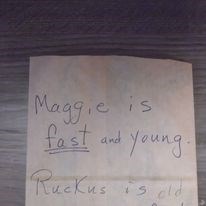 Maggie is
fast and young.
Ruckus is old